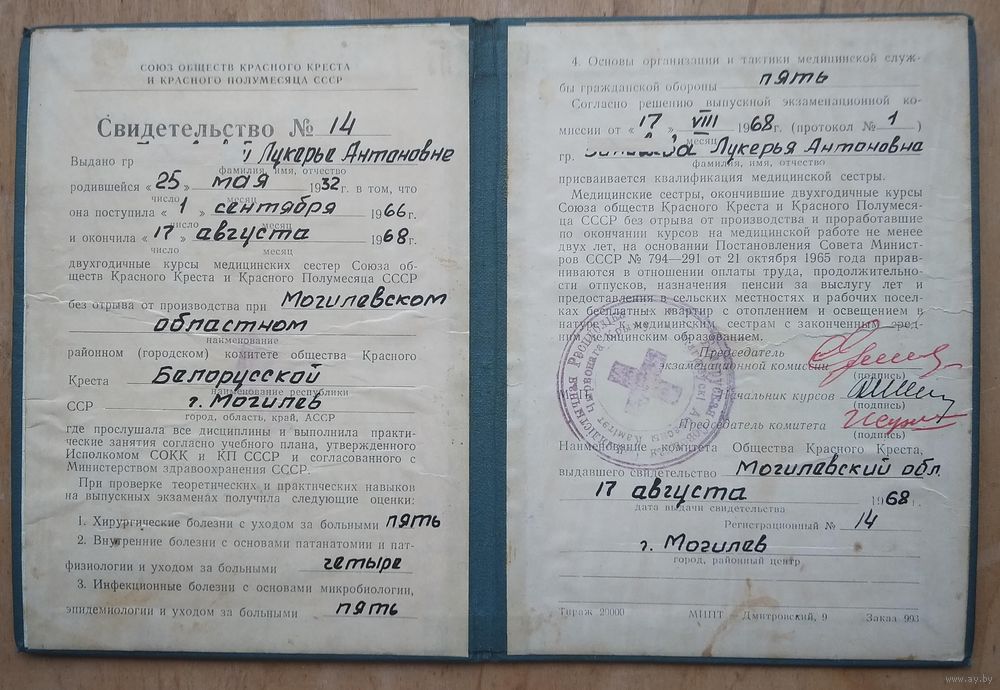 СОЮЗ ОБЩЕСТВ КРАСНОГО КРЕСТА
И КРАСНОГО ПОЛУМЕСЯЦА СССР
Свидетельство № 14
Выдано гр Лукерье Антоновне
фамилия, имя, отчество
родившейся « 25 » мая 1932 г. в том, что
число месяц
она поступила « 1 » сентября 1966 г.
число месяц
и окончила « 17 » августа 1968 г.
число месяц
двухгодичные курсы медицинских сестер Союза об-
ществ Красного Креста и Красного Полумесяца СССР
без отрыва от производства при Могилевском
областном
наименование
районном (городском) комитете общества Красного
Креста Белорусской
наименование республики
ССР г. Могилев
город, область, край, АССР
где прослушала все дисциплины и выполнила практи-
ческие занятия согласно учебного плана, утвержденного
Исполкомом СОКК и КП СССР и согласованного с
Министерством здравоохранения СССР.
При проверке теоретических и практических навыков
на выпускных экзаменах получила следующие оценки:
1. Хирургические болезни с уходом за больными пять
2. Внутренние болезни с основами патанатомии и пат-
физиологии и уходом за больными четыре
3. Инфекционные болезни с основами микробиологии,
эпидемиологии и уходом за больными пять
4. Основы организации и тактики медицинской служ-
бы гражданской обороны пять
Согласно решению выпускной экзаменационной ко-
миссии от « 17 » VIII 1968 г. (протокол № 1 )
месяц
гр. Лукерья Антоновна
фамилия, имя, отчество
присваивается квалификация медицинской сестры.
Медицинские сестры, окончившие двухгодичные курсы
Союза обществ Красного Креста и Красного Полумеся-
ца СССР без отрыва от производства и проработавшие
по окончании курсов на медицинской работе не менее
двух лет, на основании Постановления Совета Минист-
ров СССР № 794—291 от 21 октября 1965 года прирав-
ниваются в отношении оплаты труда, продолжительно-
сти отпусков, назначения пенсии за выслугу лет и
предоставления в сельских местностях и рабочих посел-
ках бесплатных квартир с отоплением и освещением в
натуре к медицинским сестрам с законченным сред-
ним медицинским образованием.
Председатель
экзаменационной комиссии
(подпись)
Начальник курсов
(подпись)
Председатель комитета
(подпись)
Наименование комитета Общества Красного Креста,
выдавшего свидетельство Могилевский обл.
17 августа 1968 г.
дата выдачи свидетельства
Регистрационный № 14
г. Могилев
город, районный центр
Тираж 20000 МИПТ — Дмитровский, 9 Заказ 993
www.ay.by